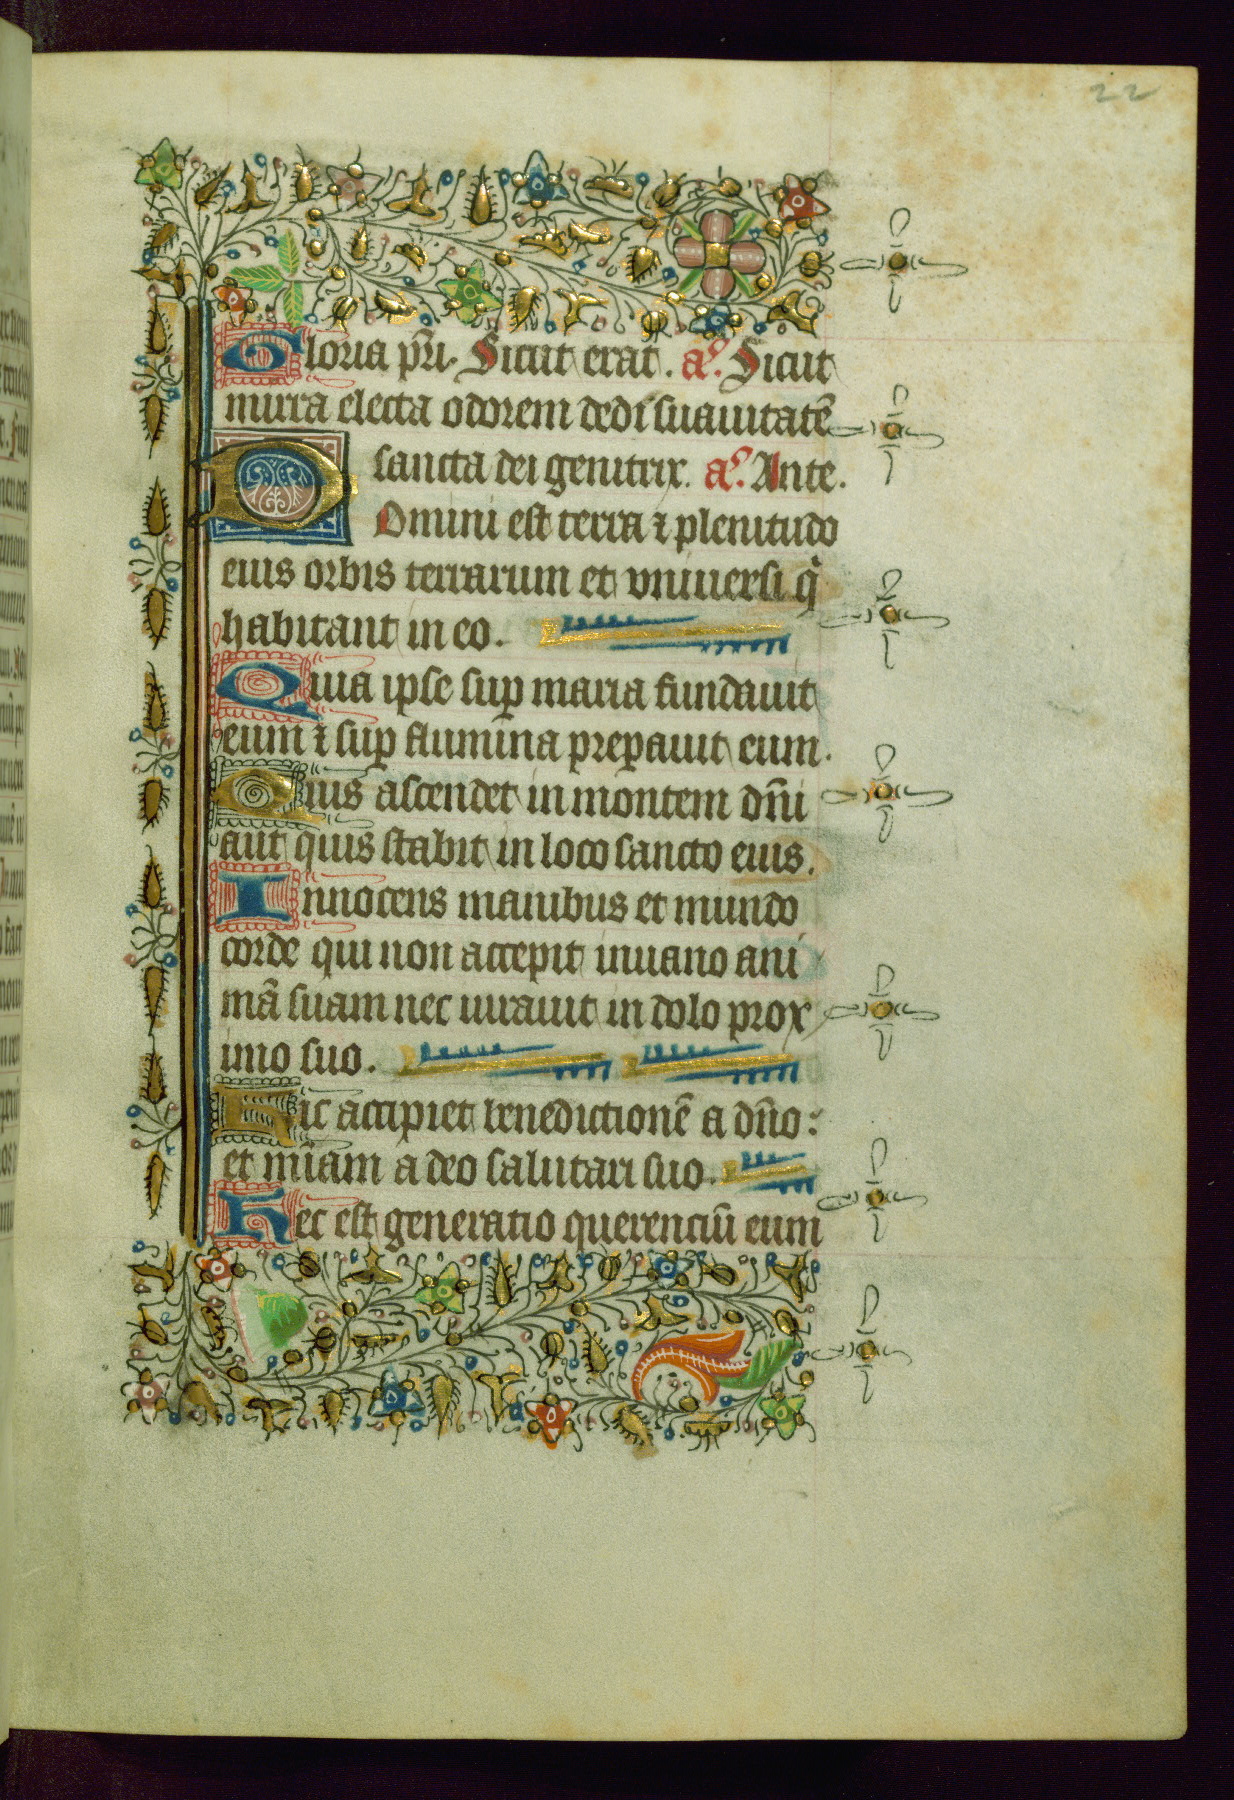 22
Gloria pr̄i. Sicut erat. a͛. Sicut
mirra electa odorem dedi suauitatē
sancta dei genitrix. a͛. Ante.
Domini est terra ⁊ plenitudo
eius orbis terrarum et vniuersi q̇
habitant in eo.
Quia ipse suꝑ maria fundauit
eum ⁊ suꝑ flumina preparauit eum.
Quis ascendet in montem dn̄i
aut quis stabit in loco sancto eius.
Innocens manibus et mundo
corde qui non accepit inuano ani
mā suam nec iurauit in dolo prox
imo suo.
Hic accipiet benedictionē a dn̄o:
et mīam a deo salutari suo.
Hec est generatio querenciū eum